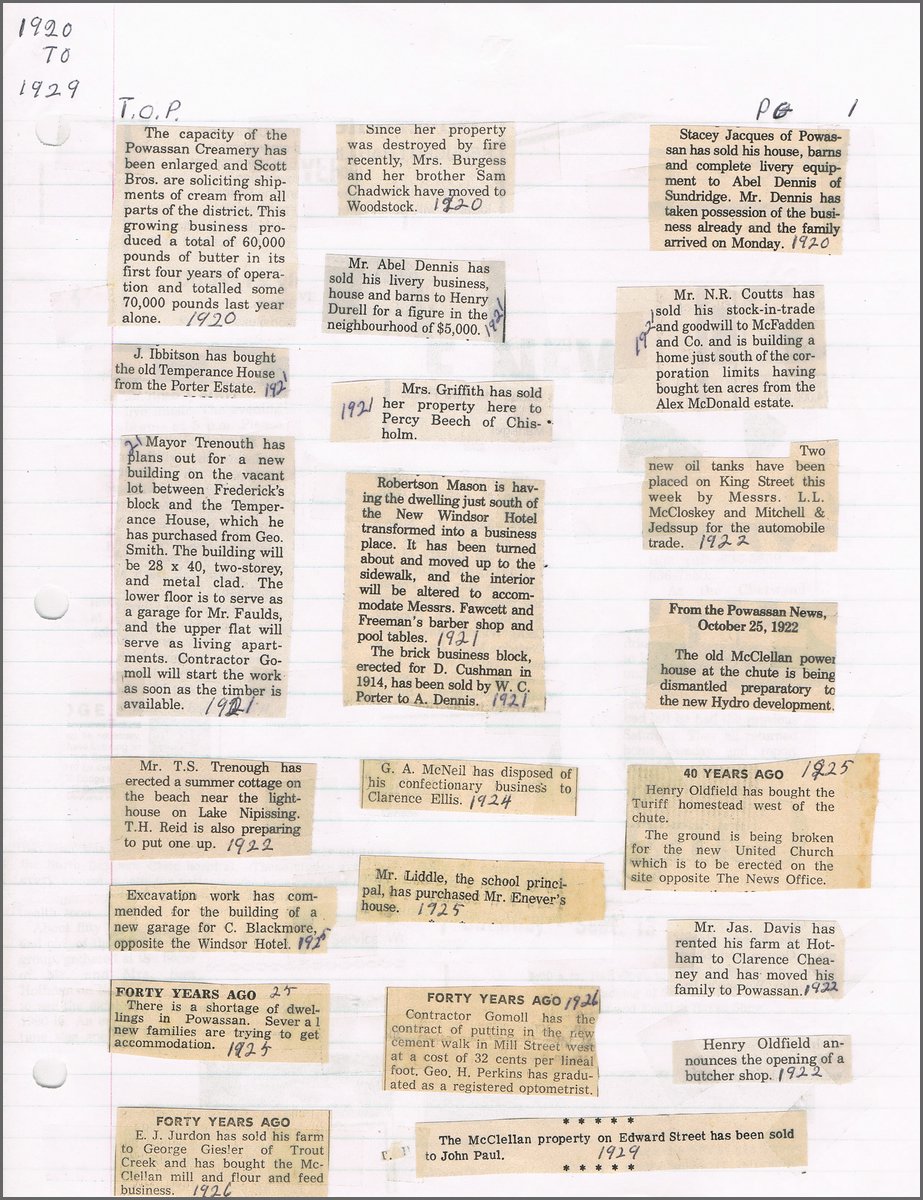 1920
TO
1929
T.O.P.
PG 1
The capacity of the
Powassan Creamery has
been enlarged and Scott
Bros. are soliciting ship-
ments of cream from all
parts of the district. This
growing business pro-
duced a total of 60,000
pounds of butter in its
first four years of opera-
tion and totalled some
70,000 pounds last year
alone. 1920
J. Ibbitson has bought
the old Temperance House
from the Porter Estate. 1921
21 Mayor Trenouth has
plans out for a new
building on the vacant
lot between Frederick's
block and the Temper-
ance House, which he
has purchased from Geo.
Smith. The building will
be 28 x 40, two-storey,
and metal clad. The
lower floor is to serve as
a garage for Mr. Faulds,
and the upper flat will
serve as living apart-
ments. Contractor Go-
moll will start the work
as soon as the timber is
available. 1921
Mr. T.S. Trenough has
erected a summer cottage on
the beach near the light-
house on Lake Nipissing.
T.H. Reid is also preparing
to put one up. 1922
Excavation work has com-
mended for the building of a
new garage for C. Blackmore,
opposite the Windsor Hotel. 1925
FORTY YEARS AGO 25
There is a shortage of dwel-
lings in Powassan. Several
new families are trying to get
accommodation. 1925
FORTY YEARS AGO
E. J. Jurdon has sold his farm
to George Giesler of Trout
Creek and has bought the Mc-
Clellan mill and flour and feed
business. 1926
Since her property
was destroyed by fire
recently, Mrs. Burgess
and her brother Sam
Chadwick have moved to
Woodstock. 1920
Mr. Abel Dennis has
sold his livery business,
house and barns to Henry
Durell for a figure in the
neighbourhood of $5,000. 1921
Mrs. Griffith has sold
1921 her property here to
Percy Beech of Chis-
holm.
Robertson Mason is hav-
ing the dwelling just south of
the New Windsor Hotel
transformed into a business
place. It has been turned
about and moved up to the
sidewalk, and the interior
will be altered to accom-
modate Messrs. Fawcett and
Freeman's barber shop and
pool tables. 1921
The brick business block,
erected for D. Cushman in
1914, has been sold by W. C.
Porter to A. Dennis. 1921
G. A. McNeil has disposed of
his confectionary business to
Clarence Ellis. 1924
Mr. Liddle, the school princi-
pal, has purchased Mr. Enever's
house. 1925
FORTY YEARS AGO 1926
Contractor Gomoll has the
contract of putting in the new
cement walk in Mill Street west
at a cost of 32 cents per lineal
foot. Geo. H. Perkins has gradu-
ated as a registered optometrist.
* * * * *
The McClellan property on Edward Street has been sold
to John Paul. 1929
* * * * *
Stacey Jacques of Powas-
san has sold his house, barns
and complete livery equip-
ment to Abel Dennis of
Sundridge. Mr. Dennis has
taken possession of the busi-
ness already and the family
arrived on Monday. 1920
Mr. N.R. Coutts has
sold his stock-in-trade
1921 and goodwill to McFadden
and Co. and is building a
home just south of the cor-
poration limits having
bought ten acres from the
Alex McDonald estate.
Two
new oil tanks have been
placed on King Street this
week by Messrs. L.L.
McCloskey and Mitchell &
Jedssup for the automobile
trade. 1922
From the Powassan News,
October 25, 1922
The old McClellan power
house at the chute is being
dismantled preparatory to
the new Hydro development.
40 YEARS AGO 1925
Henry Oldfield has bought the
Turiff homestead west of the
chute.
The ground is being broken
for the new United Church
which is to be erected on the
site opposite The News Office.
Mr. Jas. Davis has
rented his farm at Hot-
ham to Clarence Chea-
ney and has moved his
family to Powassan. 1922
Henry Oldfield an-
nounces the opening of a
butcher shop. 1922